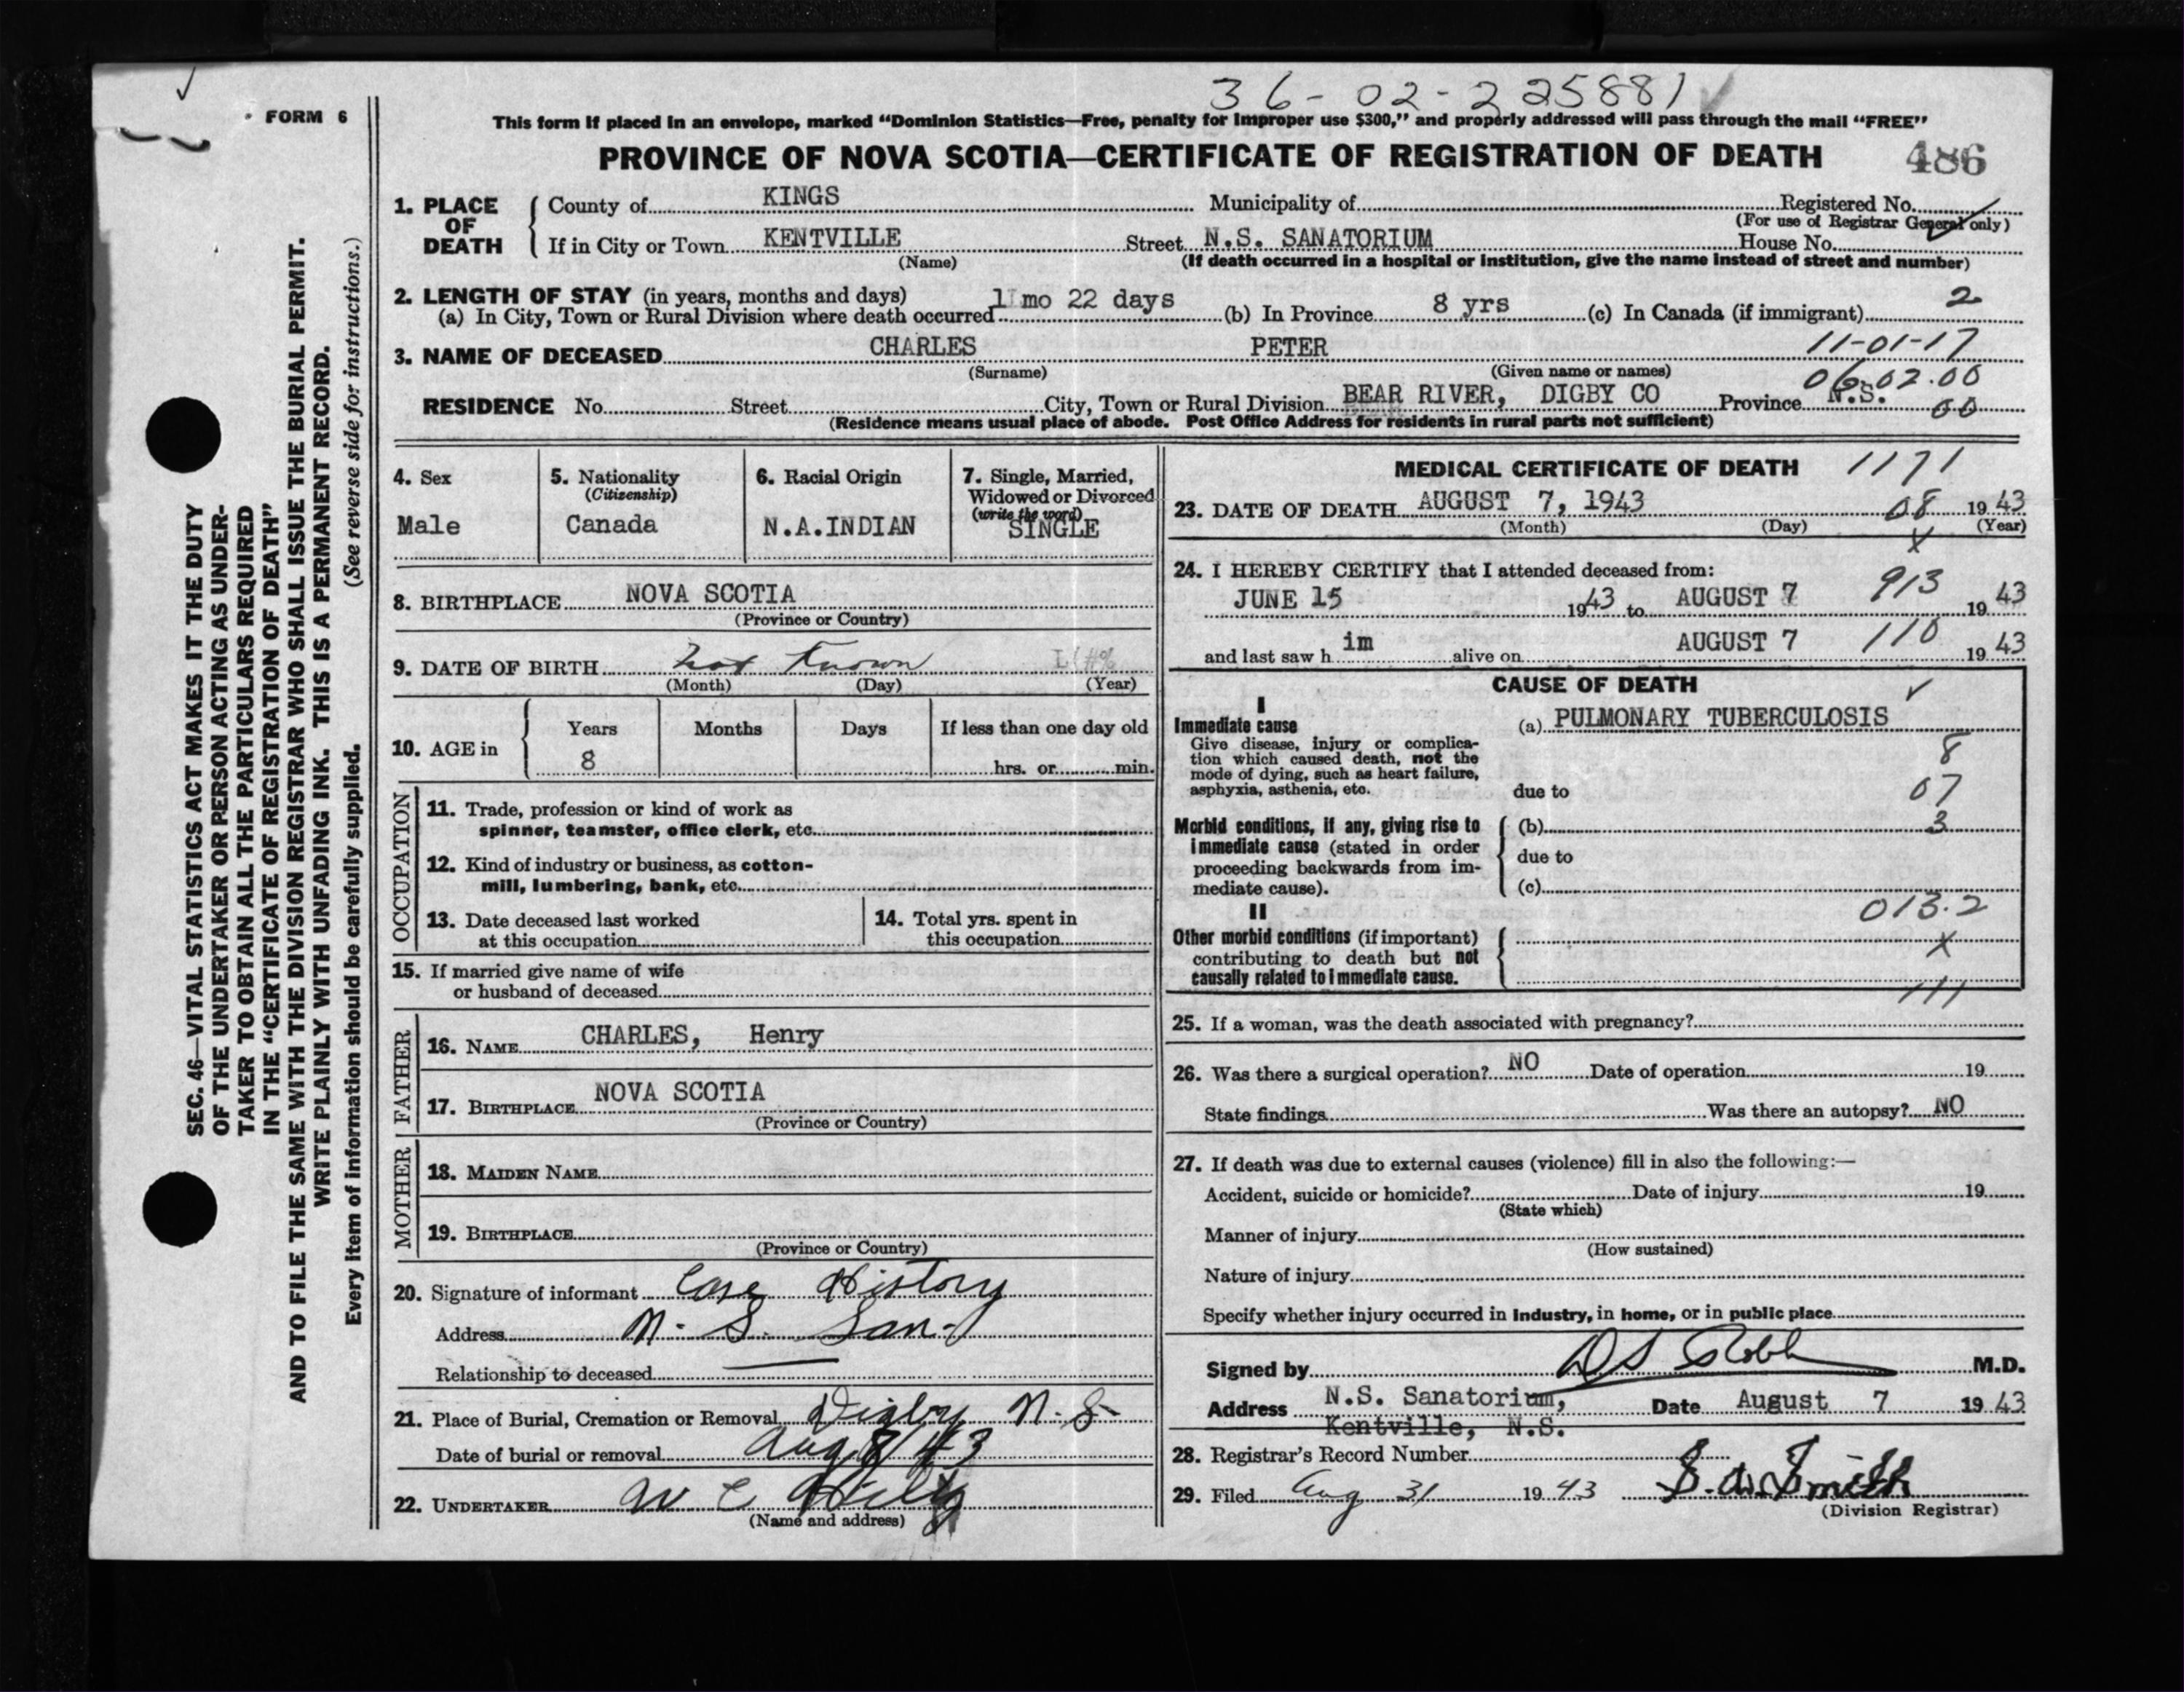 36-02-225881
FORM 6
This form if placed in an envelope, marked “Dominion Statistics—Free, penalty for improper use $300,” and properly addressed will pass through the mail “FREE”
PROVINCE OF NOVA SCOTIA—CERTIFICATE OF REGISTRATION OF DEATH 486
SEC. 46—VITAL STATISTICS ACT MAKES IT THE DUTY
OF THE UNDERTAKER OR PERSON ACTING AS UNDER-
TAKER TO OBTAIN ALL THE PARTICULARS REQUIRED
IN THE “CERTIFICATE OF REGISTRATION OF DEATH”
AND TO FILE THE SAME WITH THE DIVISION REGISTRAR WHO SHALL ISSUE THE BURIAL PERMIT.
WRITE PLAINLY WITH UNFADING INK. THIS IS A PERMANENT RECORD.
Every item of information should be carefully supplied. (See reverse side for instructions.)
1. PLACE OF DEATH
County of KINGS Municipality of Registered No.
(For use of Registrar General only)
If in City or Town KENTVILLE Street N.S. SANATORIUM House No.
(Name) (If death occurred in a hospital or institution, give the name instead of street and number)
2. LENGTH OF STAY (in years, months and days)
(a) In City, Town or Rural Division where death occurred 1 mo 22 days (b) In Province 8 yrs (c) In Canada (if immigrant) 2
3. NAME OF DECEASED CHARLES PETER 11-01-17
(Surname) (Given name or names)
06.02.00
RESIDENCE No. Street City, Town or Rural Division BEAR RIVER, DIGBY CO Province N.S. 00
(Residence means usual place of abode. Post Office Address for residents in rural parts not sufficient)
4. Sex
Male
5. Nationality
(Citizenship)
Canada
6. Racial Origin
N.A.INDIAN
7. Single, Married,
Widowed or Divorced
(write the word)
SINGLE
8. BIRTHPLACE NOVA SCOTIA
(Province or Country)
9. DATE OF BIRTH Not Known
(Month) (Day) (Year)
10. AGE in
Years Months Days If less than one day old
8 hrs. or min.
OCCUPATION
11. Trade, profession or kind of work as
spinner, teamster, office clerk, etc.
12. Kind of industry or business, as cotton-
mill, lumbering, bank, etc.
13. Date deceased last worked
at this occupation
14. Total yrs. spent in
this occupation
15. If married give name of wife
or husband of deceased
FATHER
16. NAME CHARLES, Henry
17. BIRTHPLACE NOVA SCOTIA
(Province or Country)
MOTHER
18. MAIDEN NAME
19. BIRTHPLACE
(Province or Country)
20. Signature of informant Case History
Address N. S. San.
Relationship to deceased
21. Place of Burial, Cremation or Removal Digby N. S.
Date of burial or removal Aug 8/43
22. UNDERTAKER W C
(Name and address)
MEDICAL CERTIFICATE OF DEATH 1171
23. DATE OF DEATH AUGUST 7, 1943 08 19 43
(Month) (Day) (Year)
X
24. I HEREBY CERTIFY that I attended deceased from:
JUNE 15 19 43 to AUGUST 7 913 19 43
and last saw h im alive on AUGUST 7 110 19 43
CAUSE OF DEATH
I
Immediate cause
Give disease, injury or complica-
tion which caused death, not the
mode of dying, such as heart failure,
asphyxia, asthenia, etc.
(a) PULMONARY TUBERCULOSIS
8
due to 07
Morbid conditions, if any, giving rise to
immediate cause (stated in order
proceeding backwards from im-
mediate cause).
(b) 3
due to
(c)
013.2
II
Other morbid conditions (if important)
contributing to death but not
causally related to immediate cause.
X
111
25. If a woman, was the death associated with pregnancy?
26. Was there a surgical operation? NO Date of operation 19
State findings Was there an autopsy? NO
27. If death was due to external causes (violence) fill in also the following:—
Accident, suicide or homicide? Date of injury 19
(State which)
Manner of injury
(How sustained)
Nature of injury
Specify whether injury occurred in industry, in home, or in public place
Signed by D S Robb M.D.
Address N.S. Sanatorium, Date August 7 19 43
Kentville, N.S.
28. Registrar’s Record Number
29. Filed Aug 31 19 43 Smith
(Division Registrar)